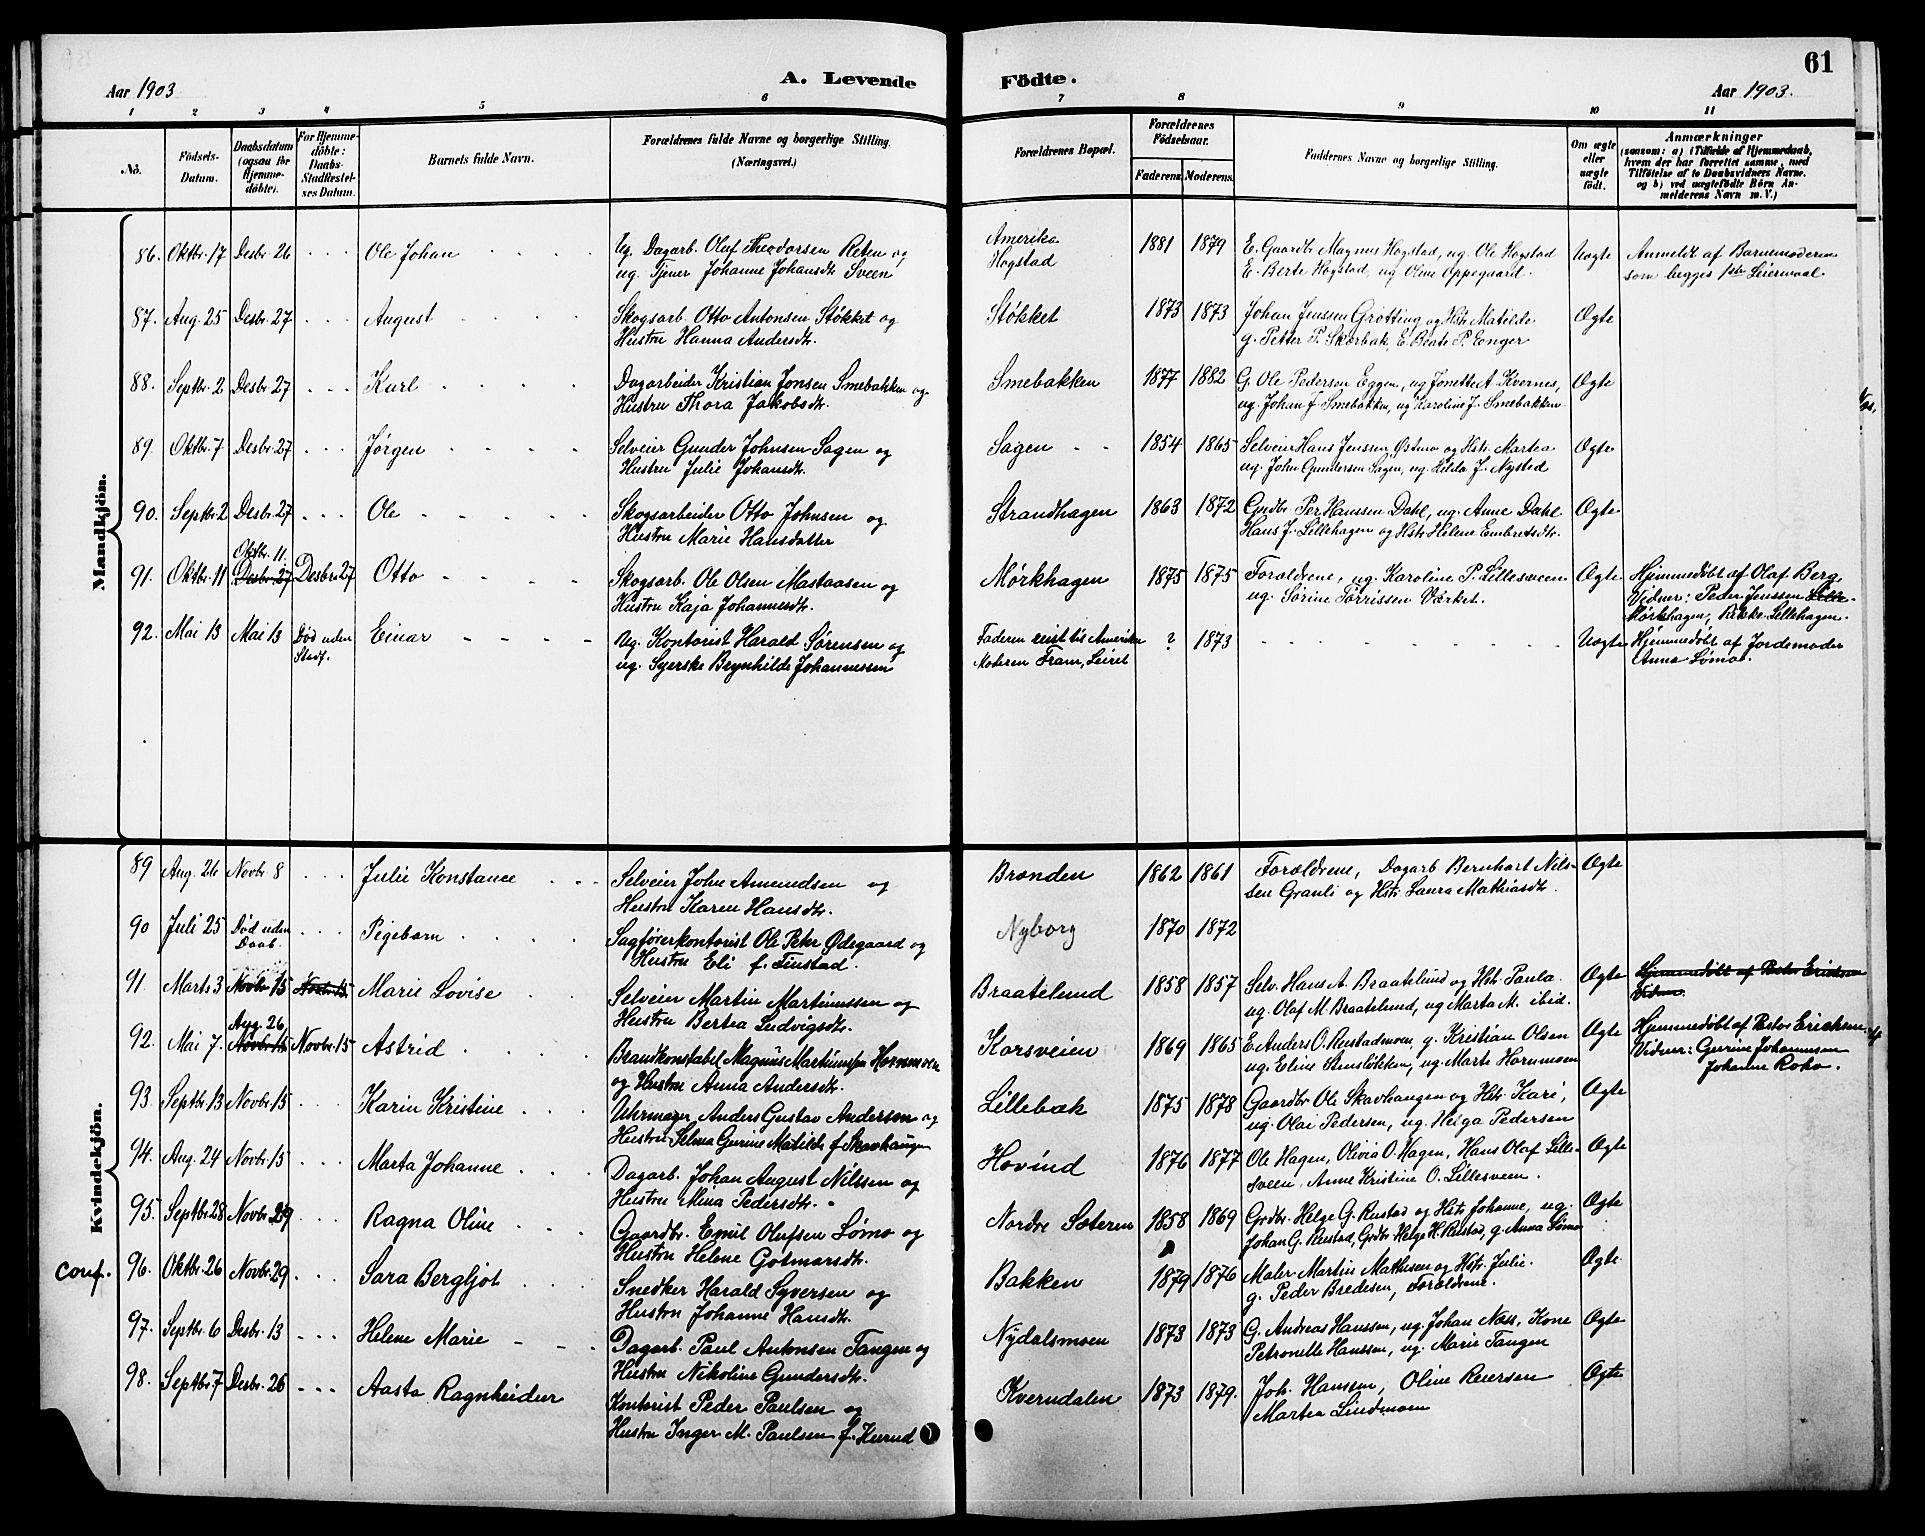 61
A. Levende Födte.
Aar 1903
Aar 1903.
1 2 3 4 5 6 7 8 9 10 11
No.
Födsels-Datum.
Daabsdatum (ogsaa for Hjemmedöbte).
For Hjemmedöbte: Daabs-Stadfæstelses Datum.
Barnets fulde Navn.
Forældrenes fulde Navne og borgerlige Stilling. (Næringsvei.)
Forældrenes Bopæl.
Forældrenes Födselsaar.
Faderens Moderens
Faddernes Navne og borgerlige Stilling.
Om ægte eller uægte födt.
Anmærkninger
(saasom: a) i Tilfælde af Hjemmedaab,
hvem der har forrettet samme, med
Tilföielse af to Daabsvidners Navne.
og b) ved uægtefödte Börn An-
melderens Navn m. V.)
Mandkjön.
86. Oktbr. 17 Desbr. 26 Ole Johan Ug. Dagarb. Oluf Theodorsen Reten og Amerika 1881 1879 E. Gaardbr Magnus Hogstad, ug. Ole Hogstad Uægte Anmeldt af Barnemoderen
ug. Tjener Johanne Johansdtr. Sveen Hogstad E. Berte Hogstad, ug Oline Oppegaard. som begges 1ste Leiermaal.
87. Aug. 25 Desbr. 27 August Skogsarb. Otto Antonsen Støkket og Støkket 1873 1873 Johan Jenssen Grøtting og Hstr Matilde Ægte
Hustru Hanna Andersdtr. g. Petter P. Skærbak, E. Beate P. Enger
88. Septbr. 2 Desbr. 27 Karl Dagarbeider Kristian Jonsen Smebakken og Smebakken 1877 1882 G. Ole Pedersen Eggen, ug Jonette A. Kvernes, Ægte
Hustru Thora Jakobsdtr. ug. Johan J. Smebakken, ug Karoline J. Smebakken
89. Oktbr. 7 Desbr. 27 Jørgen Selveier Gunder Johnsen Sagen og Sagen 1854 1865 Selveier Hans Jenssen Østmo og Hstr. Martea Ægte
Hustru Julie Johansdtr. ug. John Gundersen Sagen, ug. Hilda J. Nysted
90. Septbr. 2 Desbr. 27 Ole Skogsarbeider Otto Johnsen og Strandhagen 1863 1872 Grdbr. Per Hanssen Dahl, ug. Anne Dahl Ægte
Hustru Marie Hansdatter Hans J. Lillehagen og Hstr Helene Embretsdtr.
Oktbr. 11.
91. Oktbr. 11 Desbr. 27 Desbr. 27 Otto Skogsarb. Ole Olsen Mastaasen og Mørkhagen 1875 1875 Forældrene, ug. Karoline P. Lillesveen Ægte Hjemmedøbt af Olaf Berg
Hustru Kaja Johannesdtr. ug. Sørine Tørrissen Værket. Vidner: Peder Jenssen Lille-
Mørkhagen, Rikke Lillehagen.
92. Mai 13 Mai 13 Død uden Stadf. Einar Ug. Kontorist Harald Sørensen og Faderen reist til Amerika ? 1873 Uægte Hjemmedøbt af Jordemoder
ug. Syerske Brynhilde Johannessen Moderen Fram, Leiret Anna Lømo.
Kvindekjön.
89 Aug. 26 Novbr. 8 Julie Konstance Selveier John Amundsen og Brænden 1862 1861 Forældrene, Dagarb Bernhart Nils- Ægte
Hustru Karen Hansdtr. sen Granli og Hstr. Laura Mathiasdtr.
90 Juli 25 Død uden Daab. Pigebarn Sagførerkontorist Ole Petr Ødegaard og Nyborg 1870 1872
Hustru Eli f. Finstad.
91. Marts 3 Novbr 15 Novbr. 15 Marie Lovise Selveier Martin Martinussen og Braatelund 1858 1857 Selv. Hans A. Braatelund og Hstr. Paula Ægte Hjemmedøbt af Pastor Erichsen
Hustru Bertea Ludvigsdtr. ug. Olaf M. Braatelund, ug Marta M. ibid. Vidner
Aug. 26
92. Mai 7. Novbr. 15 Novbr. 15 Astrid Brandkonstabel Magnus Martinussen Hornmoen Korsveien 1869 1865 E. Anders O. Rustadmoen, g. Kristian Olsen Ægte Hjemmedøbt af Pastor Erichsen
og Hustru Anna Andersdtr. ug. Eline Stenslökken, ug. Marte Hornmoen Vidner: Gurine Johannessen
Johanne Roko.
93. Septbr. 13 Novbr. 15 Karin Kristine Uhrmager Anders Gustav Andersen og Lillebæk 1875 1878 Gaardbr Ole Skavhaugen og Hstr. Kari, Ægte
Hustru Selma Gurine Matilde f. Skavhaugen ug. Olai Pedersen, ug. Helga Pedersen
94. Aug. 24 Novbr. 15 Marta Johanne Dagarb. Johan August Nilssen og Hovind 1876 1877 Ole Hagen, Olivia O. Hagen, Hans Olaf Lille- Ægte
Hustru Mina Pedersdtr. sveen, Anne Kristine O. Lillesveen.
95. Septbr. 28 Novbr. 29 Ragna Oline Gaardbr. Emil Olufsen Lømo og Nordre Sæteren 1858 1869 Grdbr. Helge G. Rustad og Hstr. Johanne, ug. Ægte
Hustru Helene Gotmarsdtr. Johan G. Rustad, Grdbr Helge H. Rustad, g Anna Lømo
conf. 96. Oktbr. 26 Novbr. 29 Sara Bergljot Snedker Harald Syversen og Bakken 1879 1876 Maler Martin Mathisen og Hstr. Julie. Ægte
Hustru Johanne Hansdtr. g. Peder Bredesen, Forældrene.
97. Septbr. 6 Desbr. 13 Helene Marie Dagarb. Paul Antonsen Tangen og Nydalsmoen 1873 1873 G. Andreas Hanssen, ug. Johan Næss, Kone Ægte
Hustru Nikoline Gundersdtr. Petronelle Hanssen, ug. Marie Tangen
98. Septbr. 7 Desbr. 26 Aasta Ragnheidur Kontorist Peder Paulsen og Kverndalen 1873 1879. Joh. Hanssen, Oline Reiersen Ægte
Hustru Inger M. Paulsen f. Kurud Martea Lindmoen